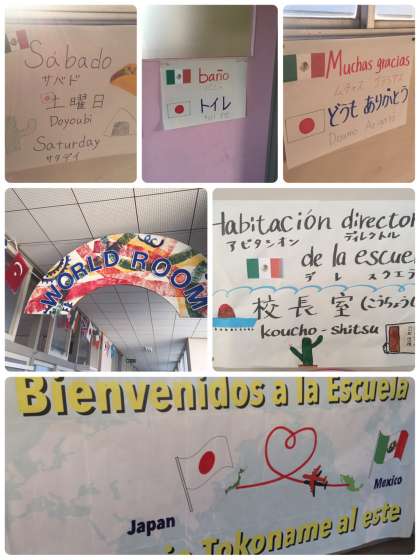 Sábado
サバド
土曜日
Doyoubi
Saturday
サタデイ
baño
トイレ
Muchas gracias
ムチャス グラシアス
どうも ありがとう
Doumo Arigato
WORLD ROOM
Habitación director
アビタシオン ディレクトル
de la escue
デ ラ エスクエラ
校長室 (こうちょう
koucho-shitsu
Bienvenidos a la Escuela
Japan
Mexico
Tokoname al este